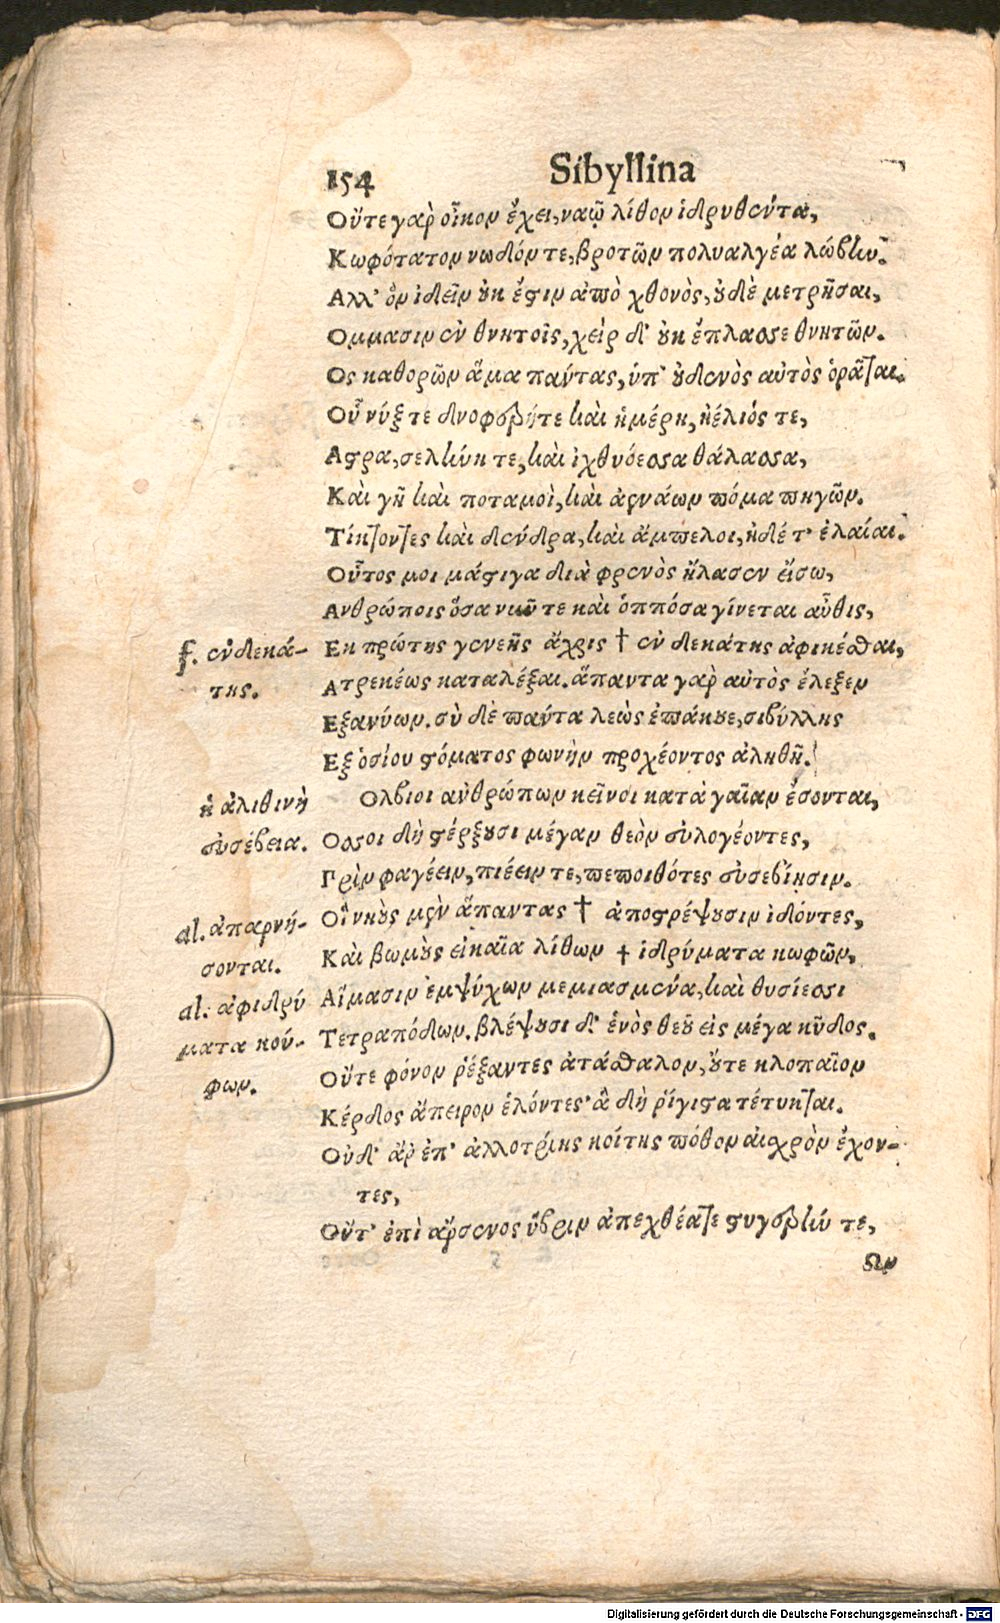 154 Sibyllina
Οὔτε γὰρ οἶκον ἔχει, ναῷ λίθον ἱδρυθέντα,
Κωφότατον νωδόν τε, βροτῶν πολυαλγέα λώβην.
Αλλ' ὃν ἰδεῖν οὐκ ἔστιν ἀπὸ χθονὸς, οὐδὲ μετρῆσαι,
Ομμασιν ἐν θνητοῖς, χεὶρ δ' οὐκ ἔπλασσε θνητῶν.
Ος καθορῶν ἅμα πάντας, ὑπ' οὐδενὸς αὐτὸς ὁρᾶται.
Οὗ νύξ τε δνοφερή τε καὶ ἡμέρη, ἠέλιός τε,
Αστρα, σελήνη τε, καὶ ἰχθυόεσσα θάλασσα,
Καὶ γῆ καὶ ποταμοὶ, καὶ ἀενάων πόμα πηγῶν.
Τίκτοντες καὶ δένδρα, καὶ ἄμπελοι, ἠδέ τ' ἐλαίαι.
Οὗτος μοι μάστιγα διὰ φρενὸς ἤλασεν εἴσω,
Ανθρώποις ὅσα νῦν τε καὶ ὁππόσα γίνεται αὖθις,
f. ἐνδεκά-
Εκ πρώτης γενεῆς ἄχρις † ἐν δεκάτης ἀφικέσθαι,
της.
Ατρεκέως καταλέξαι. ἅπαντα γὰρ αὐτὸς ἔλεξεν
Εξανύων. σὺ δὲ πάντα λεὼς ἐπάκουε, σιβύλλης
Εξ ὁσίου στόματος φωνὴν προχέοντος ἀληθῆ.
ἡ ἀλιθινὴ
Ολβιοι ἀνθρώπων κεῖνοι κατὰ γαῖαν ἔσονται,
εὐσέβεια.
Οσσοι δὴ στέρξουσι μέγαν θεὸν εὐλογέοντες,
Πρὶν φαγέειν, πιέειν τε, πεποιθότες εὐσεβίῃσιν.
al. ἀπαρνή-
Οἳ νηοὺς μὲν ἅπαντας † ἀποστρέψουσιν ἰδόντες,
σονται.
Καὶ βωμοὺς εἰκαῖα λίθων † ἱδρύματα κωφῶν,
al. ἀφιδρύ
Αἵμασιν ἐμψύχων μεμιασμένα, καὶ θυσίεσσι
ματα κού-
Τετραπόδων. βλέψουσι δ' ἑνὸς θεοῦ εἰς μέγα κῦδος.
φων.
Οὔτε φόνον ῥέξαντες ἀτάσθαλον, οὔτε κλοπαῖον
Κέρδος ἄπειρον ἑλόντες· ἃ δὴ ῥίγιστα τέτυκται.
Οὐδ' ἂρ ἐπ' ἀλλοτρίης κοίτης πόθον αἰσχρὸν ἔχον-
τες,
Οὔτ' ἐπὶ ἄρσενος ὕβριν ἀπεχθέα τε στυγερήν τε,
Ων
Digitalisierung gefördert durch die Deutsche Forschungsgemeinschaft - DFG